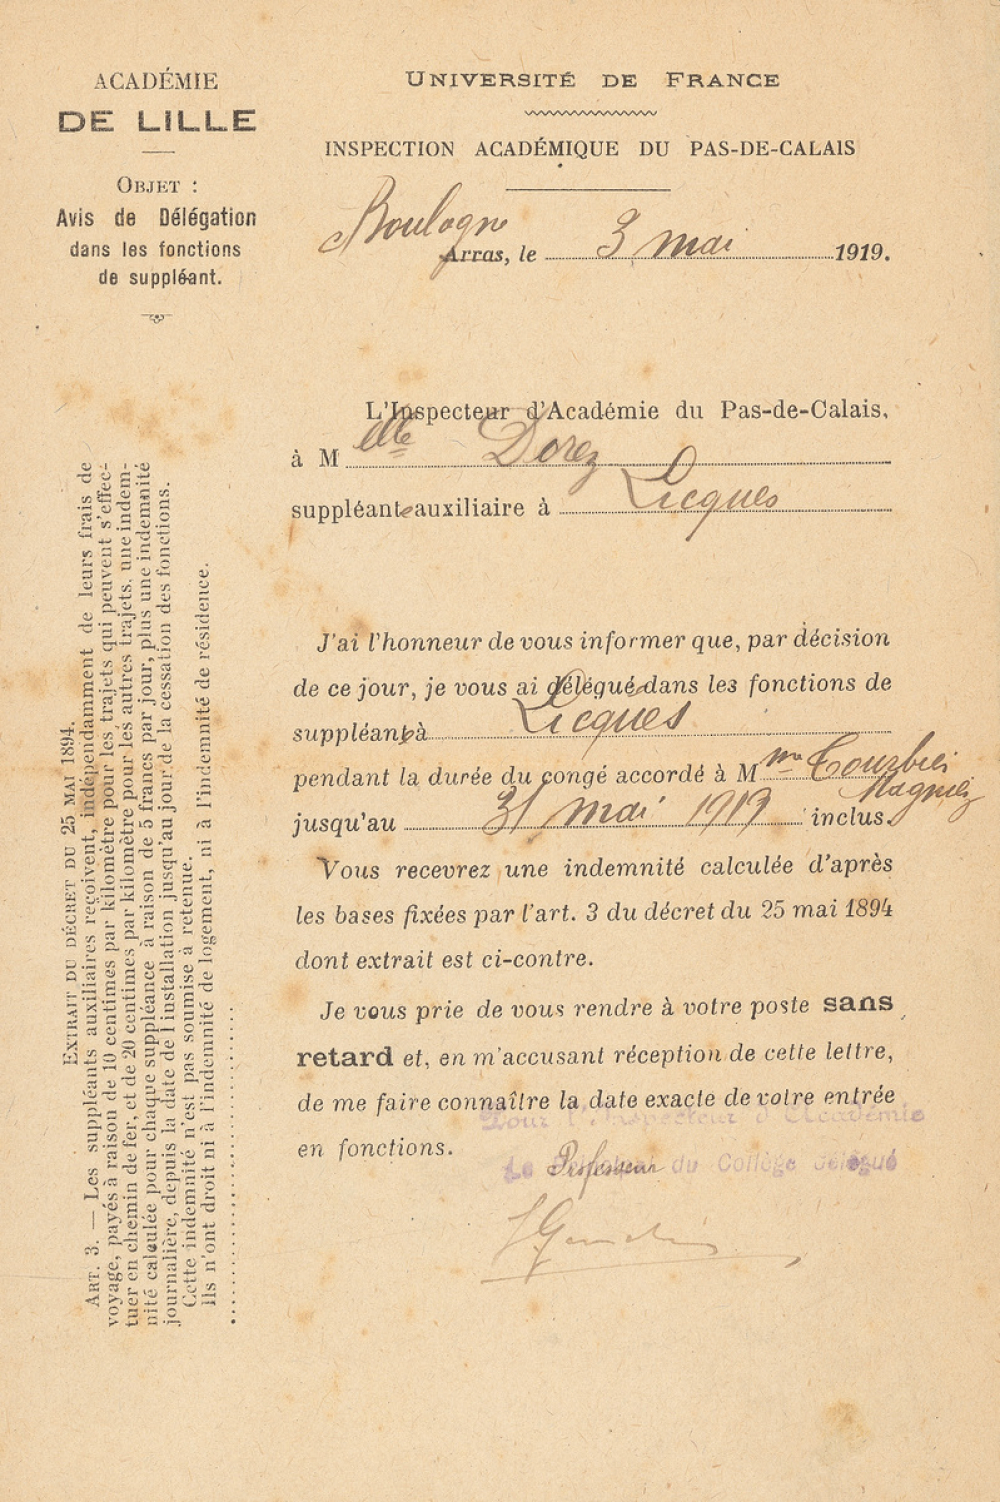 ACADÉMIE
DE LILLE
OBJET :
Avis de Délégation
dans les fonctions
de suppléant.
UNIVERSITÉ DE FRANCE
INSPECTION ACADÉMIQUE DU PAS-DE-CALAIS
Boulogne
Arras, le 3 mai 1919.
L'Inspecteur d'Académie du Pas-de-Calais,
à M elle Dorez
suppléante auxiliaire à Licques
J'ai l'honneur de vous informer que, par décision
de ce jour, je vous ai déléguée dans les fonctions de
suppléante à Licques
pendant la durée du congé accordé à M me
jusqu'au 31 mai 1919 inclus.
Vous recevrez une indemnité calculée d'après
les bases fixées par l'art. 3 du décret du 25 mai 1894
dont extrait est ci-contre.
Je vous prie de vous rendre à votre poste sans
retard et, en m'accusant réception de cette lettre,
de me faire connaître la date exacte de votre entrée
en fonctions.
Pour l'Inspecteur d'Académie
Le Professeur du Collège délégué
EXTRAIT DU DÉCRET DU 25 MAI 1894.
ART. 3. — Les suppléants auxiliaires reçoivent, indépendamment de leurs frais de
voyage, payés à raison de 10 centimes par kilomètre pour les trajets qui peuvent s'effec-
tuer en chemin de fer, et de 20 centimes par kilomètre pour les autres trajets, une indem-
nité calculée pour chaque suppléance à raison de 5 francs par jour, plus une indemnité
journalière, depuis la date de l'installation jusqu'au jour de la cessation des fonctions.
Cette indemnité n'est pas soumise à retenue.
Ils n'ont droit ni à l'indemnité de logement, ni à l'indemnité de résidence.